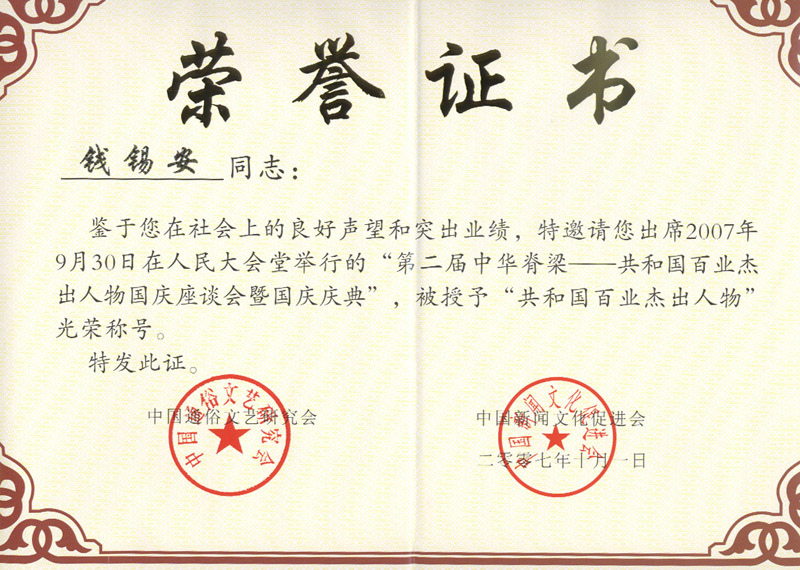 荣誉证书
钱锡安同志：
鉴于您在社会上的良好声望和突出业绩，特邀请您出席2007年
9月30日在人民大会堂举行的“第二届中华脊梁——共和国百业杰
出人物国庆座谈会暨国庆庆典”，被授予“共和国百业杰出人物”
光荣称号。
特发此证。
中国通俗文艺研究会
中国新闻文化促进会
二零零七年十月一日
中国通俗文艺研究会
中国新闻文化促进会